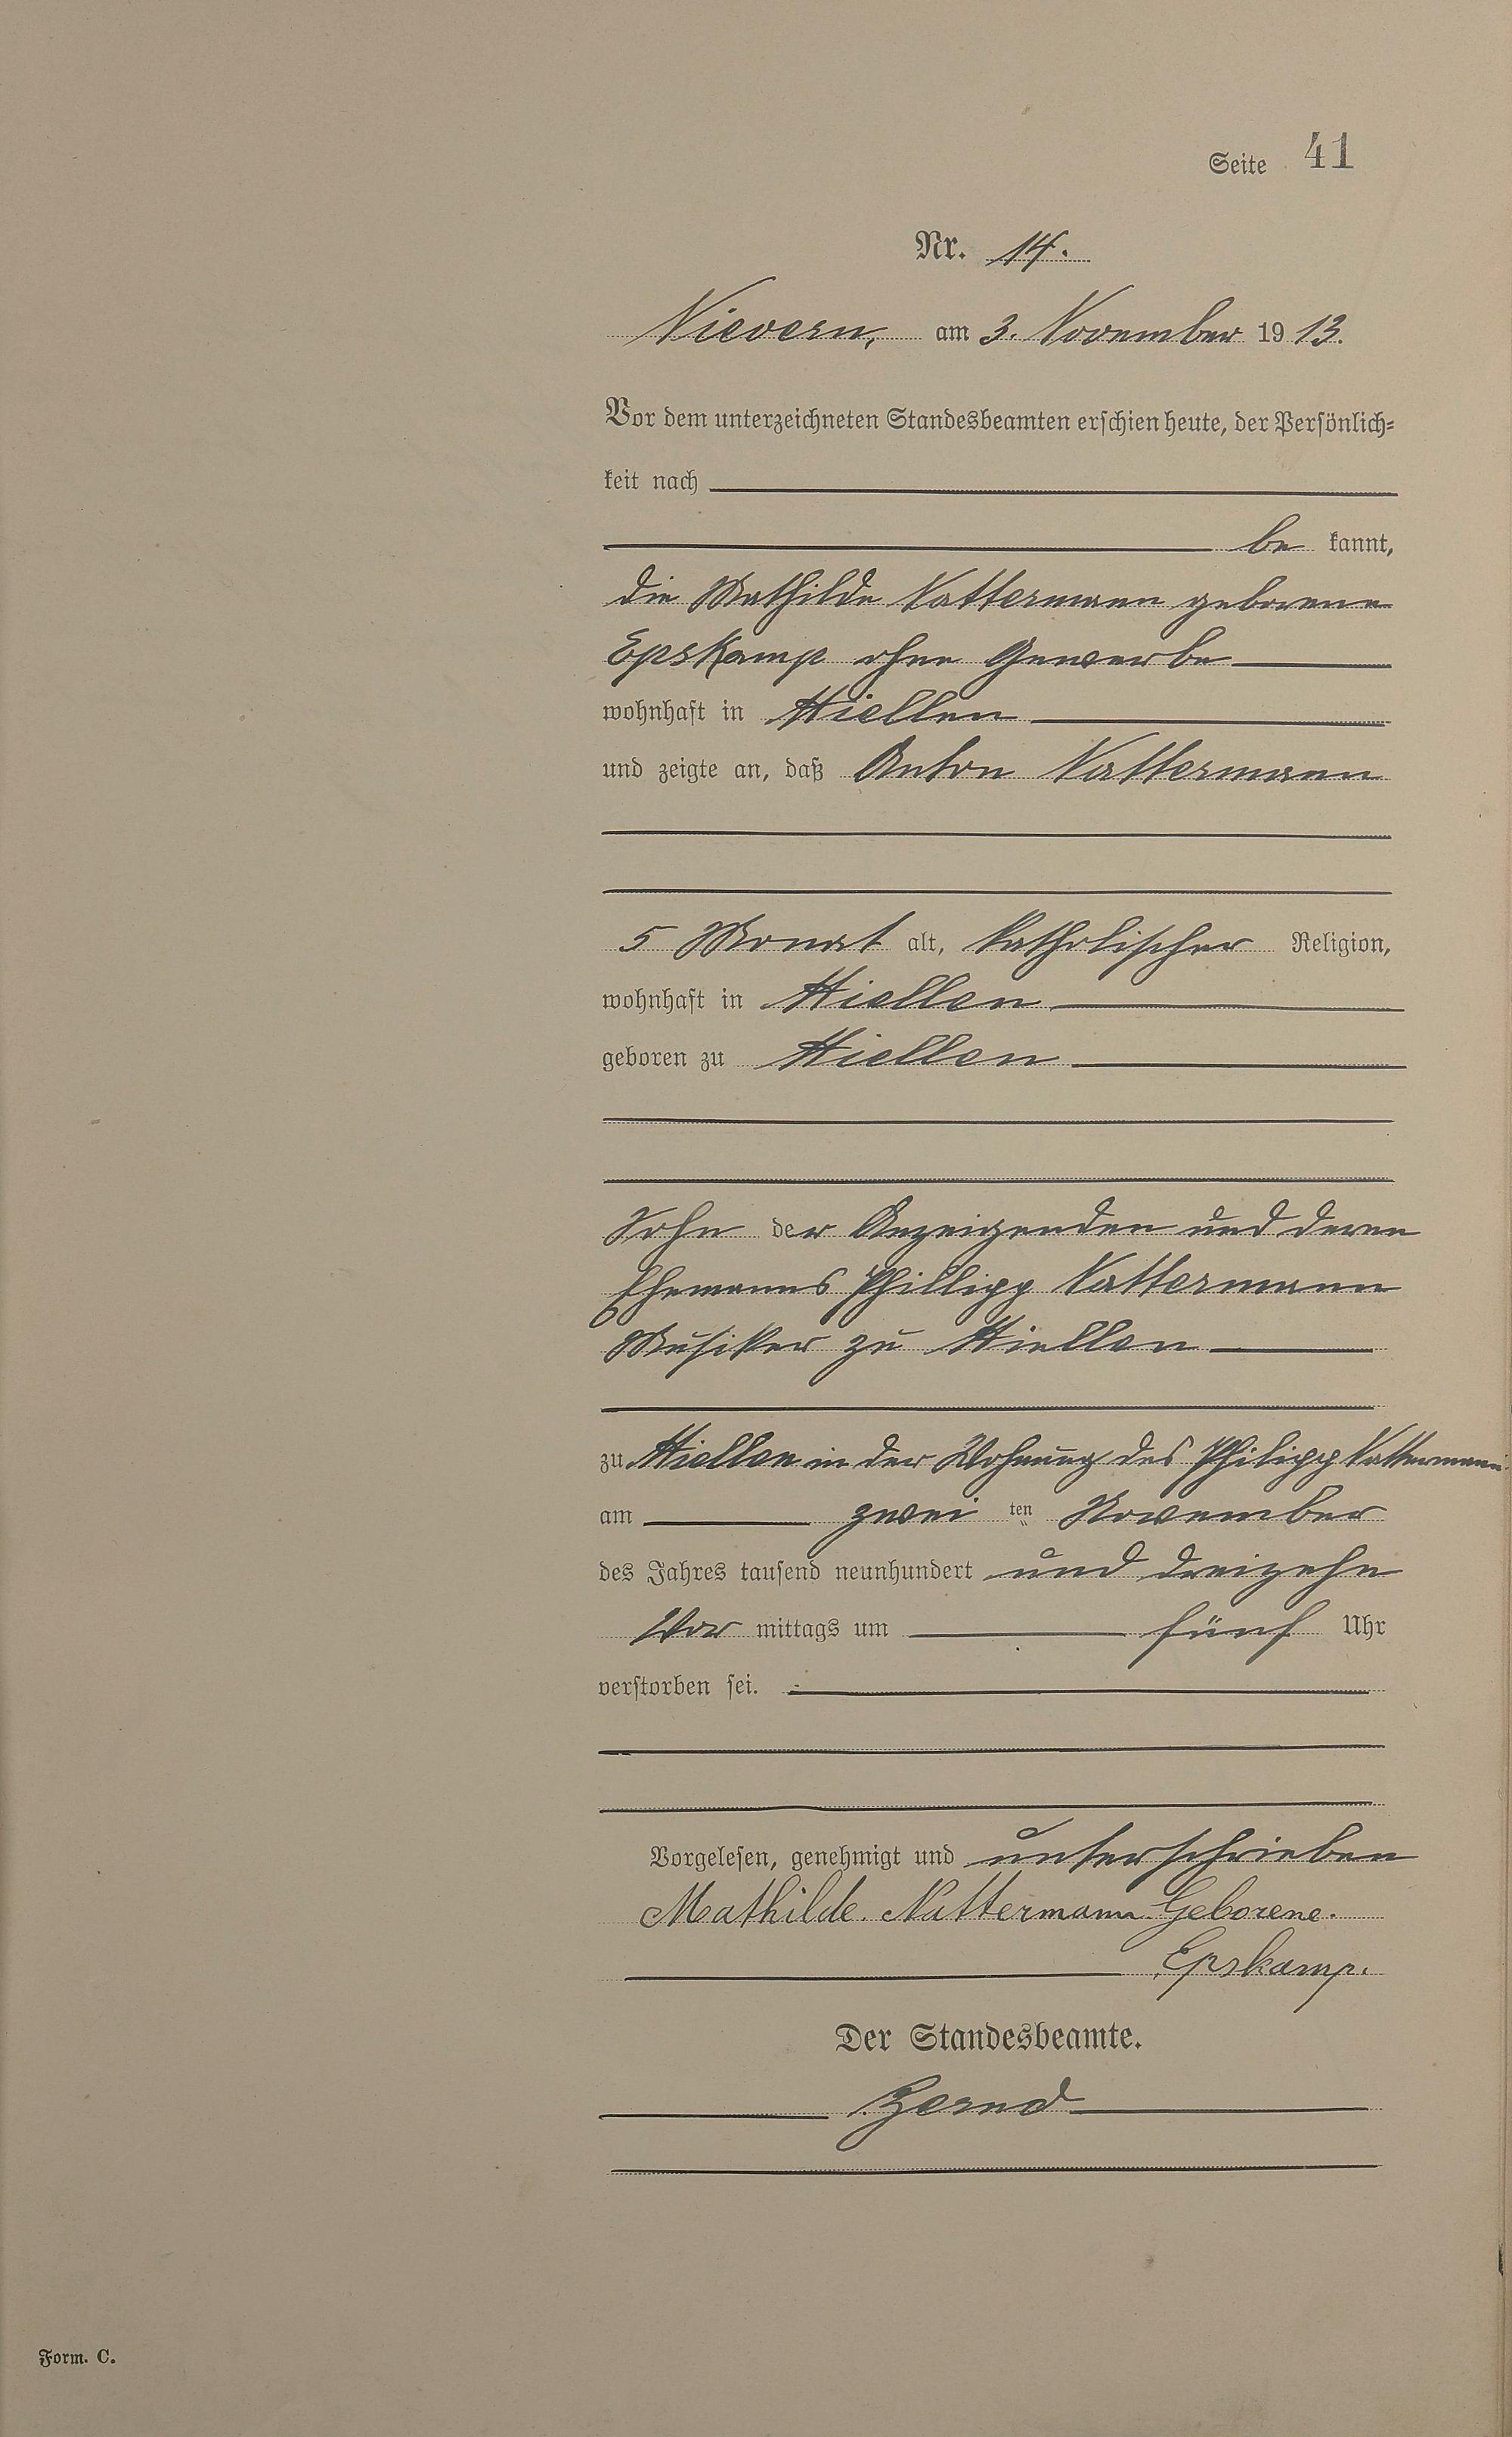 Seite 41
Nr. 14.
Nievern, am 3. November 1913.
Vor dem unterzeichneten Standesbeamten erschien heute, der Persönlich-
keit nach
be kannt,
die Mathilde Nattermann geborene
Epskamp ohne Gewerbe
wohnhaft in Miellen
und zeigte an, daß Anton Nattermann
5 Monat alt, katholischer Religion,
wohnhaft in Miellen
geboren zu Miellen
Sohn der Anzeigenden und deren
Ehemanns Phillipp Nattermann
Musiker zu Miellen
zu Miellen in der Wohnung des Philipp Nattermann
am zwei ten November
des Jahres tausend neunhundert und dreizehn
Vor mittags um fünf Uhr
verstorben sei.
Vorgelesen, genehmigt und unterschrieben
Mathilde. Nattermann Geborene.
Epskamp.
Der Standesbeamte.
Form. C.